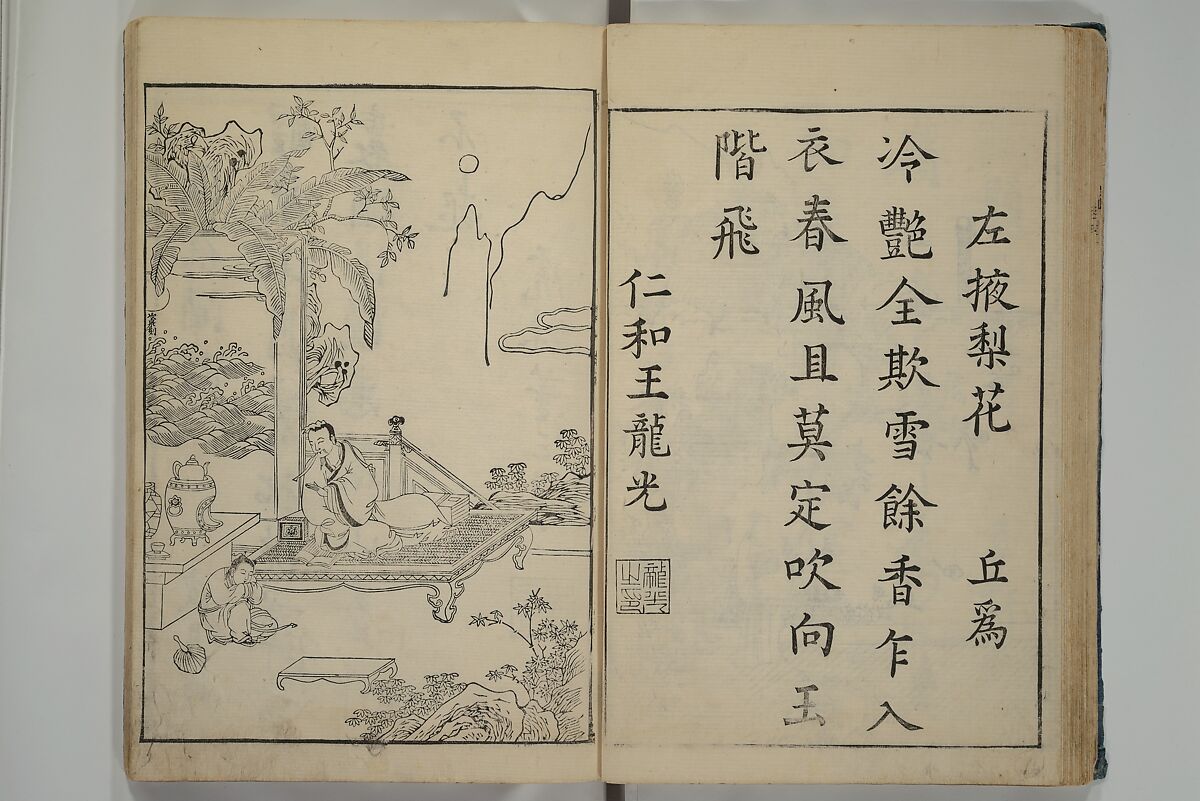 左掖梨花 丘爲
冷艷全欺雪餘香乍入
衣春風且莫定吹向玉
階飛
仁和王龍光
龍光之印